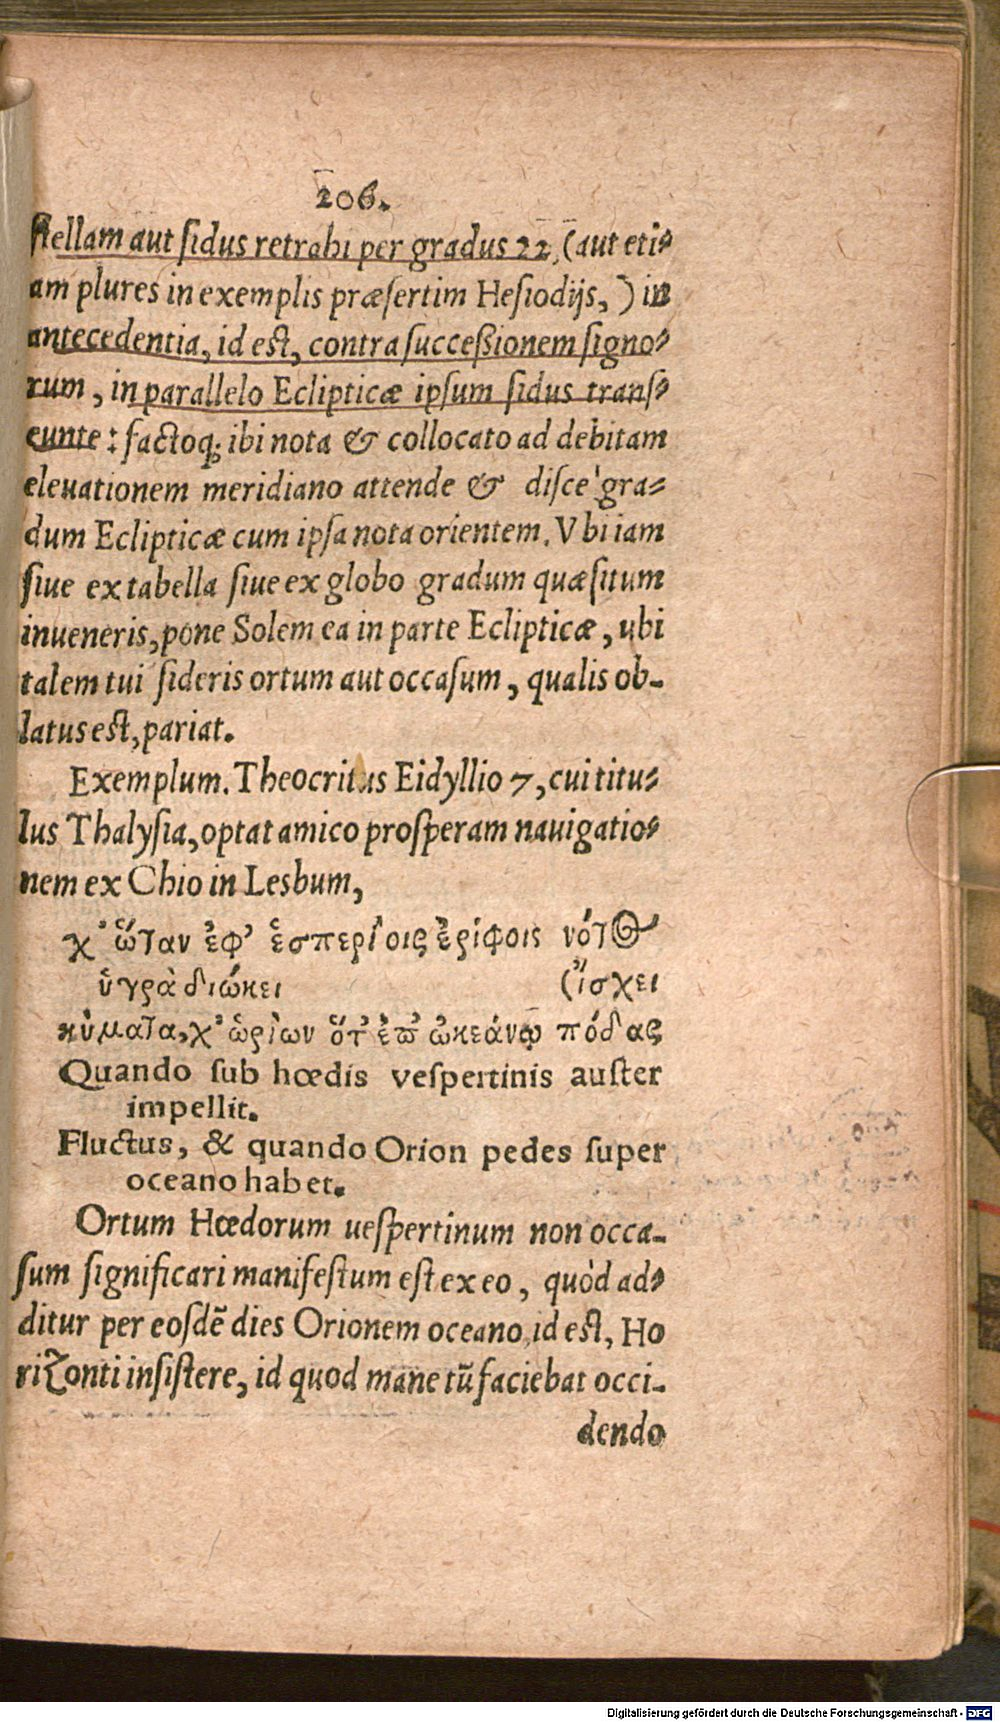 206.
ſtellam aut ſidus retrahi per gradus 22, (aut eti-
am plures in exemplis præſertim Heſiodijs,) in
antecedentia, id eſt, contra ſucceßionem ſigno-
rum, in parallelo Eclipticæ ipſum ſidus tranſ-
eunte: factoq; ibi nota & collocato ad debitam
eleuationem meridiano attende & diſce gra-
dum Eclipticæ cum ipſa nota orientem. Vbi iam
ſiue ex tabella ſiue ex globo gradum quæſitum
inueneris, pone Solem ea in parte Eclipticæ, ubi
talem tui ſideris ortum aut occaſum, qualis ob-
latus eſt, pariat.
Exemplum. Theocritus Eidyllio 7, cui titu-
lus Thalyſia, optat amico proſperam nauigatio-
nem ex Chio in Lesbum,
χ' ὥταν ἐφ' ἑσπερίοις ἐρίφοις νότος
ὑγρὰ διώκει (ἴσχει
κύματα, χ' ὠρίων ὅτ' ἐπ' ὠκεάνῳ πόδας
Quando ſub hœdis veſpertinis auſter
impellit.
Fluctus, & quando Orion pedes ſuper
oceano habet.
Ortum Hœdorum ueſpertinum non occa-
ſum ſignificari manifeſtum eſt ex eo, quòd ad-
ditur per eoſdẽ dies Orionem oceano, id eſt, Ho
rizonti inſiſtere, id quod mane tũ faciebat occi-
dendo
Digitalisierung gefördert durch die Deutsche Forschungsgemeinschaft - DFG